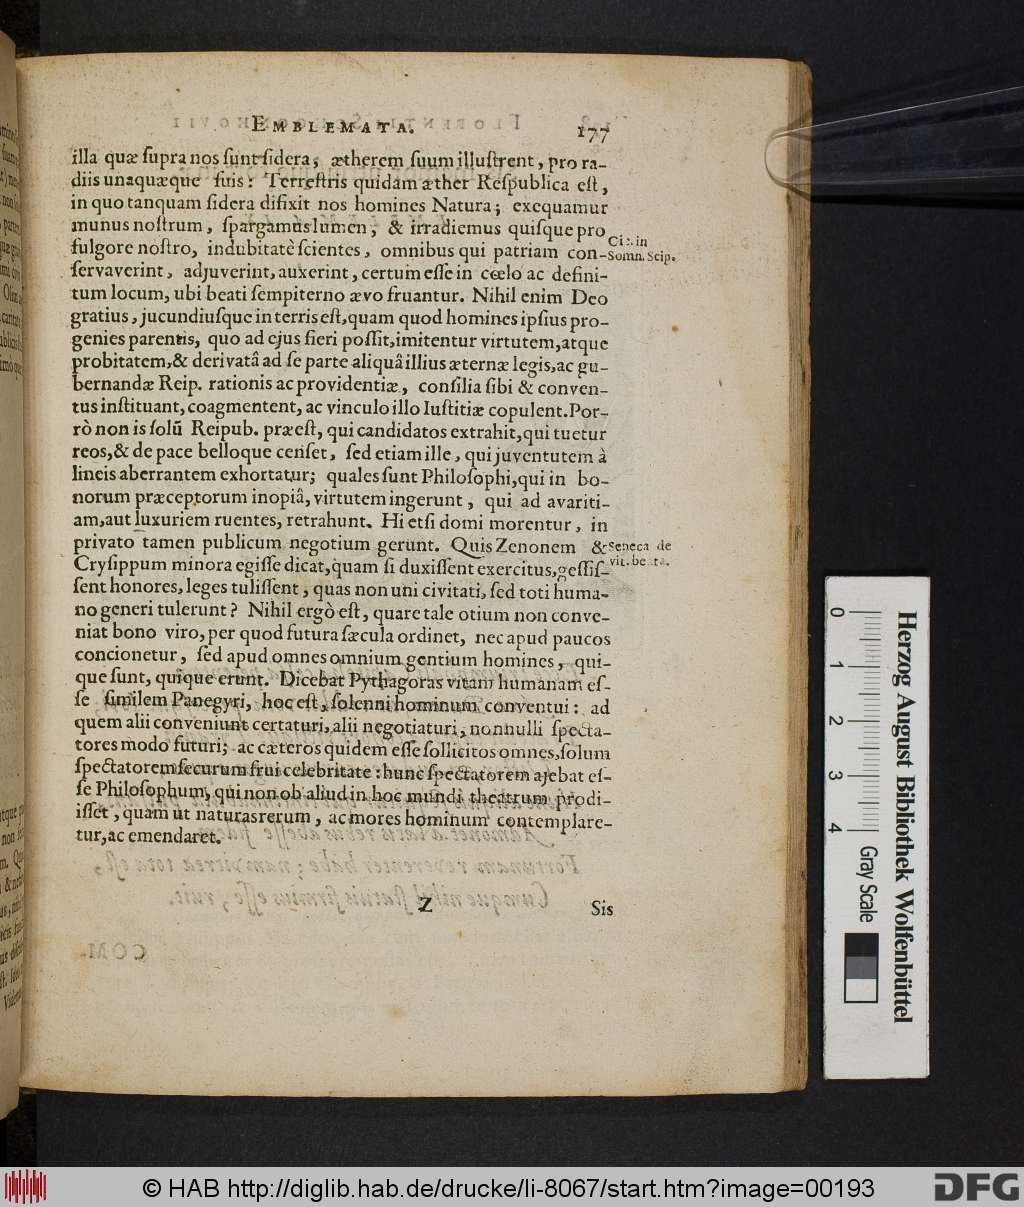 EMBLEMATA. 177
illa quæ ſupra nos ſunt ſidera, ætherem ſuum illuſtrent, pro ra-
diis unaquæque ſuis: Terreſtris quidam æther Reſpublica eſt,
in quo tanquam ſidera diſixit nos homines Natura; exequamur
munus noſtrum, ſpargamus lumen, & irradiemus quiſque pro
fulgore noſtro, indubitatè ſcientes, omnibus qui patriam con-
Cic. in
Somn. Scip.
ſervaverint, adjuverint, auxerint, certum eſſe in cœlo ac defini-
tum locum, ubi beati ſempiterno ævo fruantur. Nihil enim Deo
gratius, jucundiuſque in terris eſt, quam quod homines ipſius pro-
genies parentis, quo ad ejus fieri poſſit, imitentur virtutem, atque
probitatem, & derivatâ ad ſe parte aliquâ illius æternæ legis, ac gu-
bernandæ Reip. rationis ac providentiæ, conſilia ſibi & conven-
tus inſtituant, coagmentent, ac vinculo illo Iuſtitiæ copulent. Por-
rò non is ſolũ Reipub. præeſt, qui candidatos extrahit, qui tuetur
reos, & de pace belloque cenſet, ſed etiam ille, qui juventutem à
lineis aberrantem exhortatur; quales ſunt Philoſophi, qui in bo-
norum præceptorum inopiâ, virtutem ingerunt, qui ad avariti-
am, aut luxuriem ruentes, retrahunt. Hi etſi domi morentur, in
privato tamen publicum negotium gerunt. Quis Zenonem &
Seneca de
vit. beata.
Cryſippum minora egiſſe dicat, quam ſi duxiſſent exercitus, geſſiſ-
ſent honores, leges tuliſſent, quas non uni civitati, ſed toti huma-
no generi tulerunt? Nihil ergò eſt, quare tale otium non conve-
niat bono viro, per quod futura ſæcula ordinet, nec apud paucos
concionetur, ſed apud omnes omnium gentium homines, qui-
que ſunt, quique erunt. Dicebat Pythagoras vitam humanam eſ-
ſe ſimilem Panegyri, hoc eſt, ſolenni hominum conventui: ad
quem alii conveniunt certaturi, alii negotiaturi, nonnulli ſpecta-
tores modo futuri; ac cæteros quidem eſſe ſollicitos omnes, ſolum
ſpectatorem ſecurum frui celebritate: hunc ſpectatorem ajebat eſ-
ſe Philoſophum, qui non ob aliud in hoc mundi theatrum prodi-
iſſet, quam ut naturas rerum, ac mores hominum contemplare-
tur, ac emendaret.
Z Sis
Herzog August Bibliothek Wolfenbüttel
0 1 2 3 4 Gray Scale
© HAB http://diglib.hab.de/drucke/li-8067/start.htm?image=00193
DFG